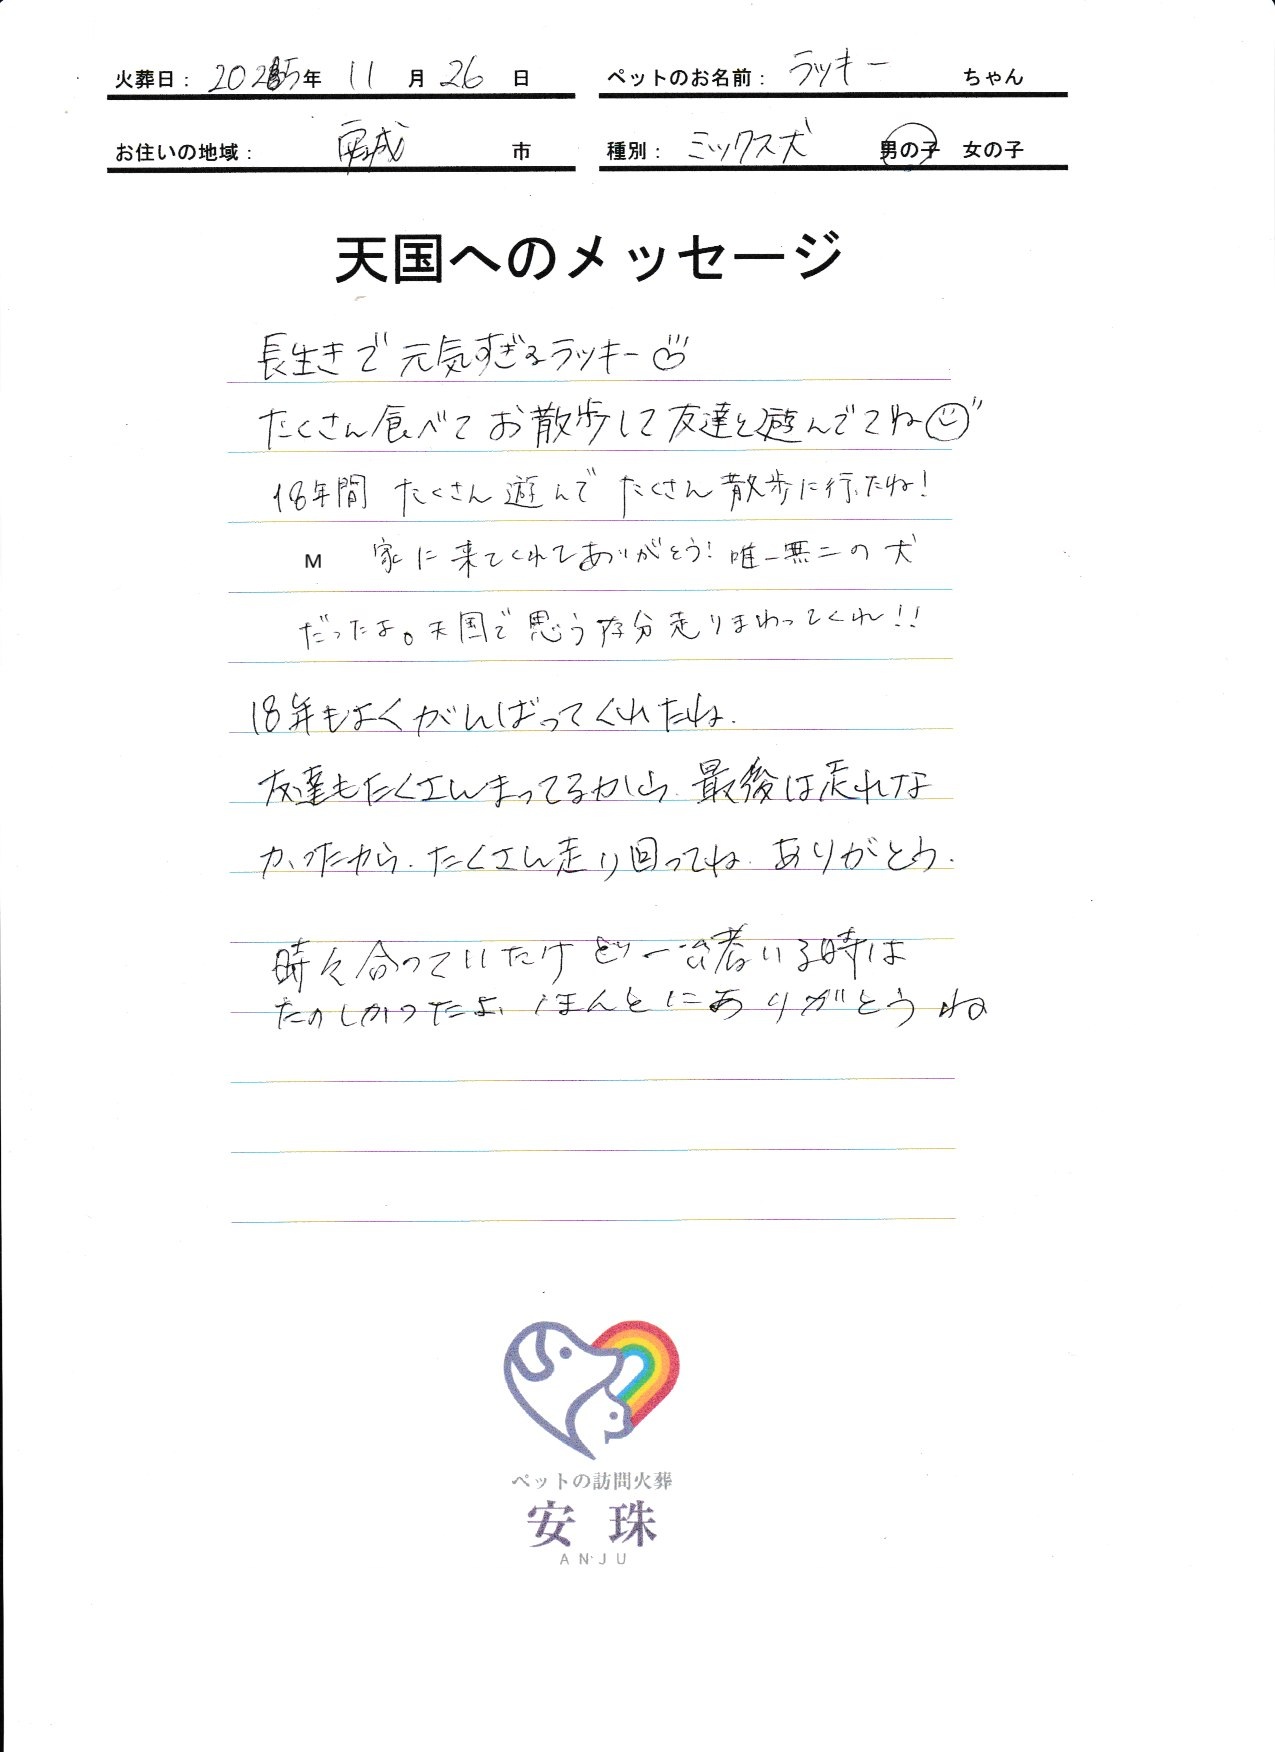 火葬日： 2025年 11 月 26 日
ペットのお名前： ラッキー ちゃん
お住いの地域： 安城 市
種別： ミックス犬 男の子 女の子
天国へのメッセージ
長生きで元気すぎるラッキー
たくさん食べてお散歩して友達と遊んでてね
18年間 たくさん遊んで たくさん散歩に行ったね！
M 家に来てくれてありがとう！唯一無二の犬
だったよ。天国で思う存分走りまわってくれ！！
18年もよくがんばってくれたね.
友達もたくさんまってるから.最後は走れな
かったから.たくさん走り回ってね.ありがとう.
時々合っていたけど一緒いる時は
たのしかったよ、ほんとにありがとうね
ペットの訪問火葬
安珠
ANJU